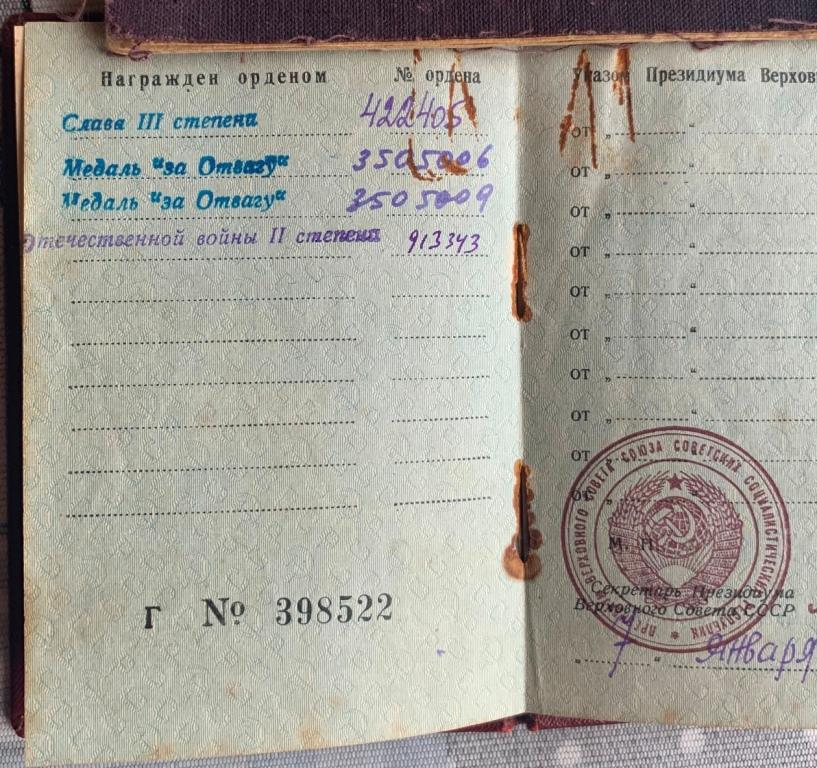 Награжден орденом № ордена
Слава III степени 422405
Медаль "за Отвагу" 3505006
Медаль "за Отвагу" 3505009
Отечественной войны II степени 913343
Г № 398522
Указом Президиума Верхов
от „ “
от „ “
от „ “
от „ “
от „ “
от „ “
от „ “
от „ “
от
М. П.
Секретарь Президиума
Верховного Совета СССР
„ 7 “ Января
ПРЕЗИДИУМ ВЕРХОВНОГО СОВЕТА СОЮЗА СОВЕТСКИХ СОЦИАЛИСТИЧЕСКИХ РЕСПУБЛИК